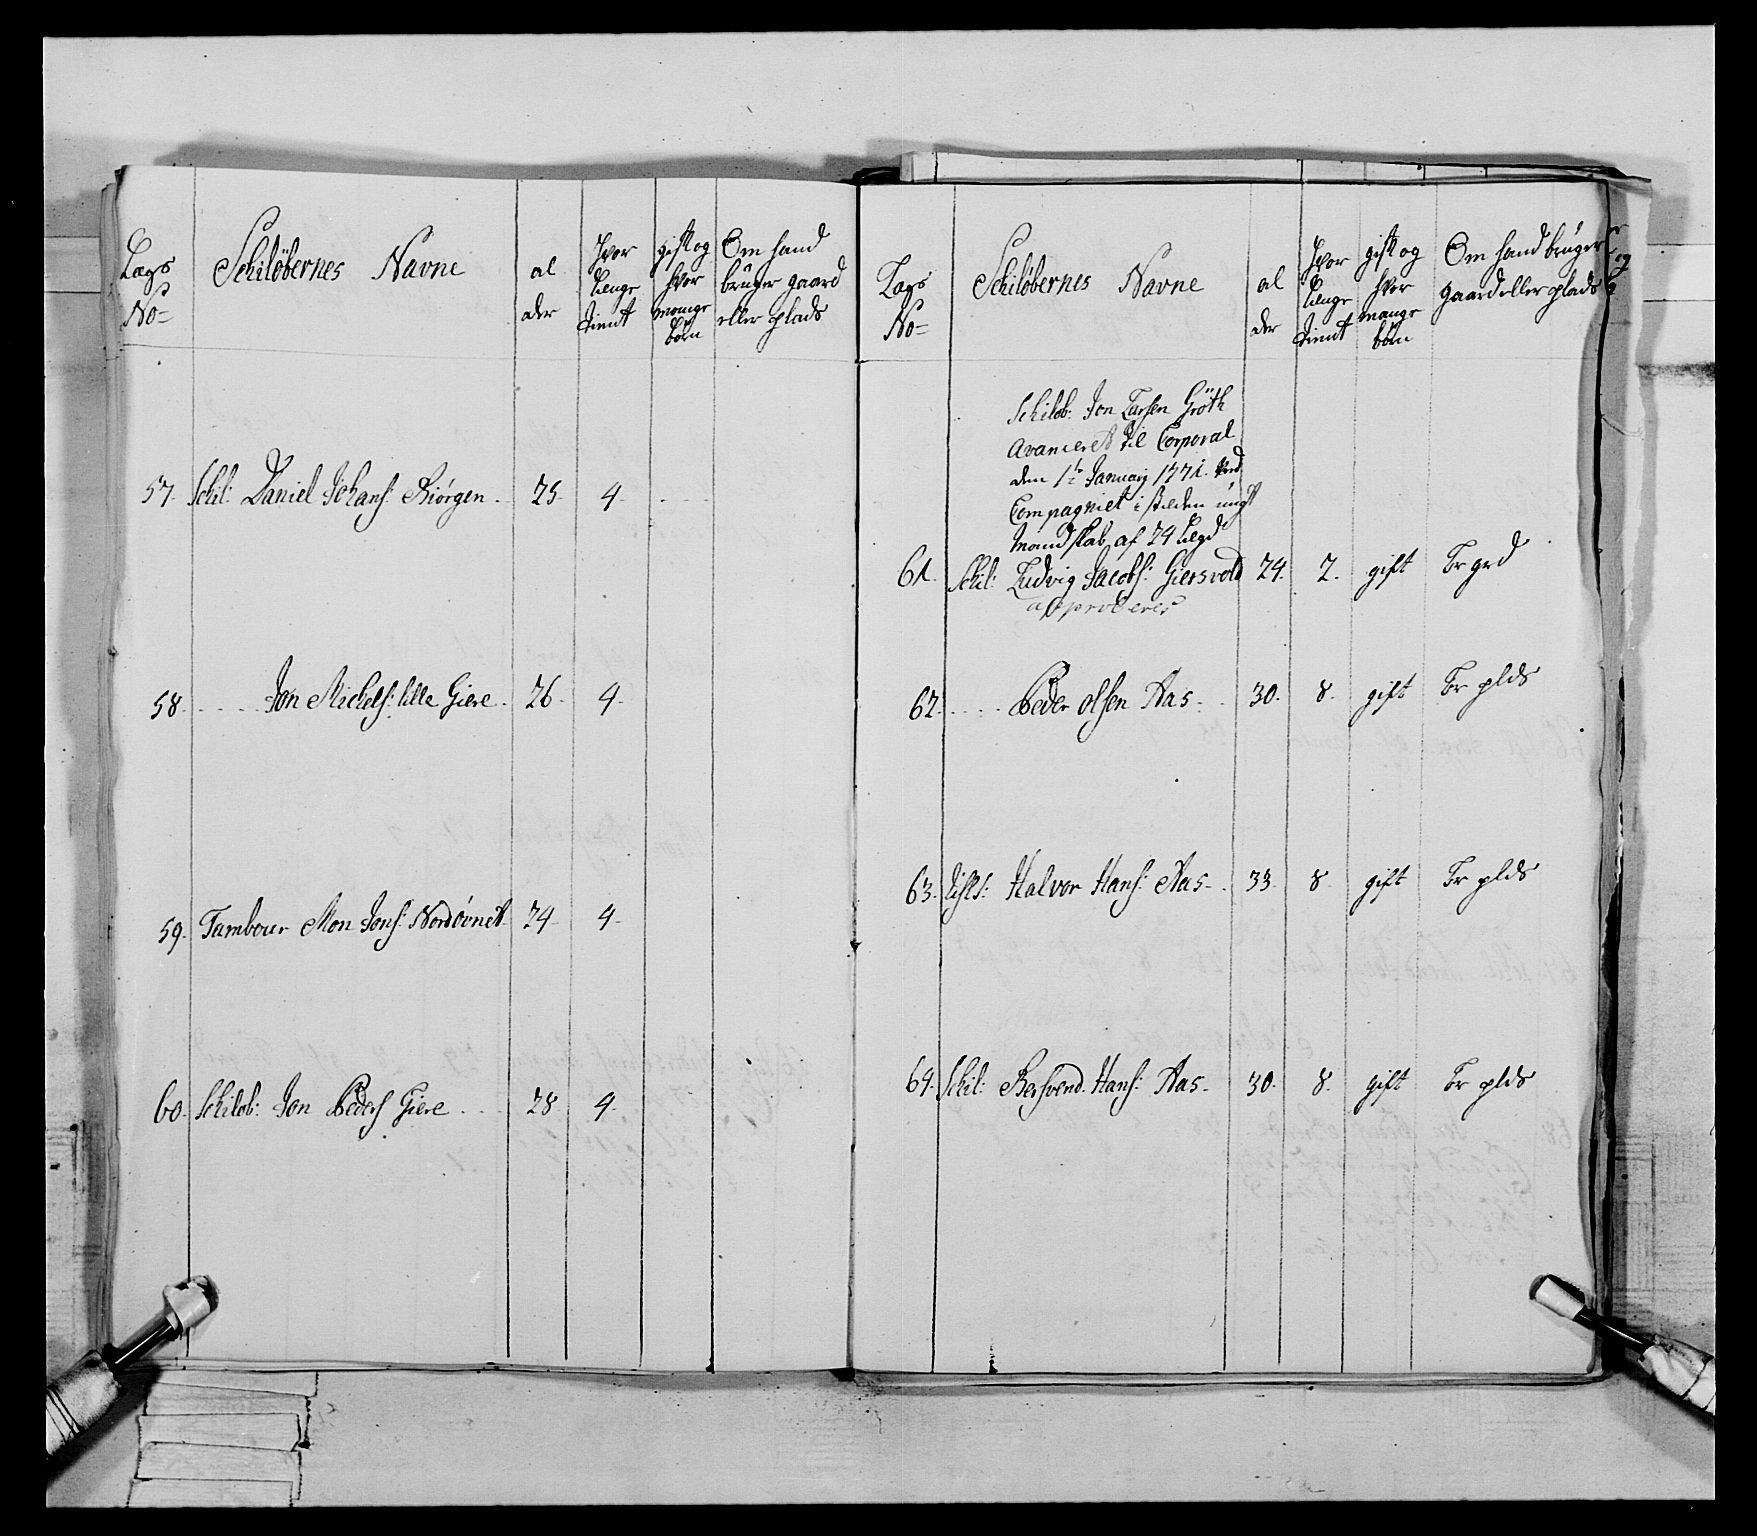 Lægs No= Schilöbernes Navne al der hvor længe tient gift og hvor mange börn Om hand bruger gaard eller plads
57. Schil: Daniel Johans: Kiörgen. 25. 4.
58. Jon Michels: lille Giere. 26. 4.
59. Tambour Mon Jons: Nordövnet. 24. 4.
60. Schilöb: Jon Peders Giere 28 4.
Lægs No= Schilöbernes Navne al der hvor længe tient gift og hvor mange börn Om hand bruger gaard eller plads
Schilöb: Jon Larsen Gröth
avanceret til Corporal
den 1te Januarij 1771. ved
Compagniet i steden ungt
Mandskab af 24 Lægd
61. Schil: Ludvig Jacobs: Giersvold 24. 2. gift Br grd
approberes
62. Peder Olsen Aas. 30. 8. gift Br plds
63. Halvor Hans: Aas. 33. 8. gift Br plds
64. Schil: Bersvend Hans: Aas. 30. 8. gift Br plds